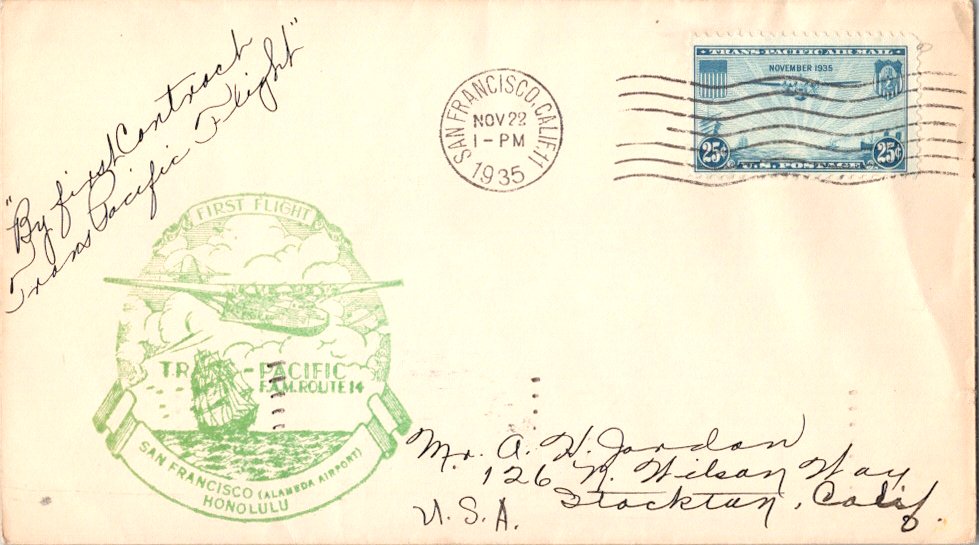 "By first Contract
Trans Pacific Flight"
SAN FRANCISCO, CALIF. 11
NOV 22
1 - PM
1935
TRANS-PACIFIC AIR MAIL
NOVEMBER 1935
25¢ 25¢
U.S. POSTAGE
FIRST FLIGHT
TRANS-PACIFIC
F.A.M. ROUTE 14
SAN FRANCISCO (ALAMEDA AIRPORT)
HONOLULU
Mr. A. W. Jordan
126 N. Wilson Way
Stockton, Calif.
U. S. A.